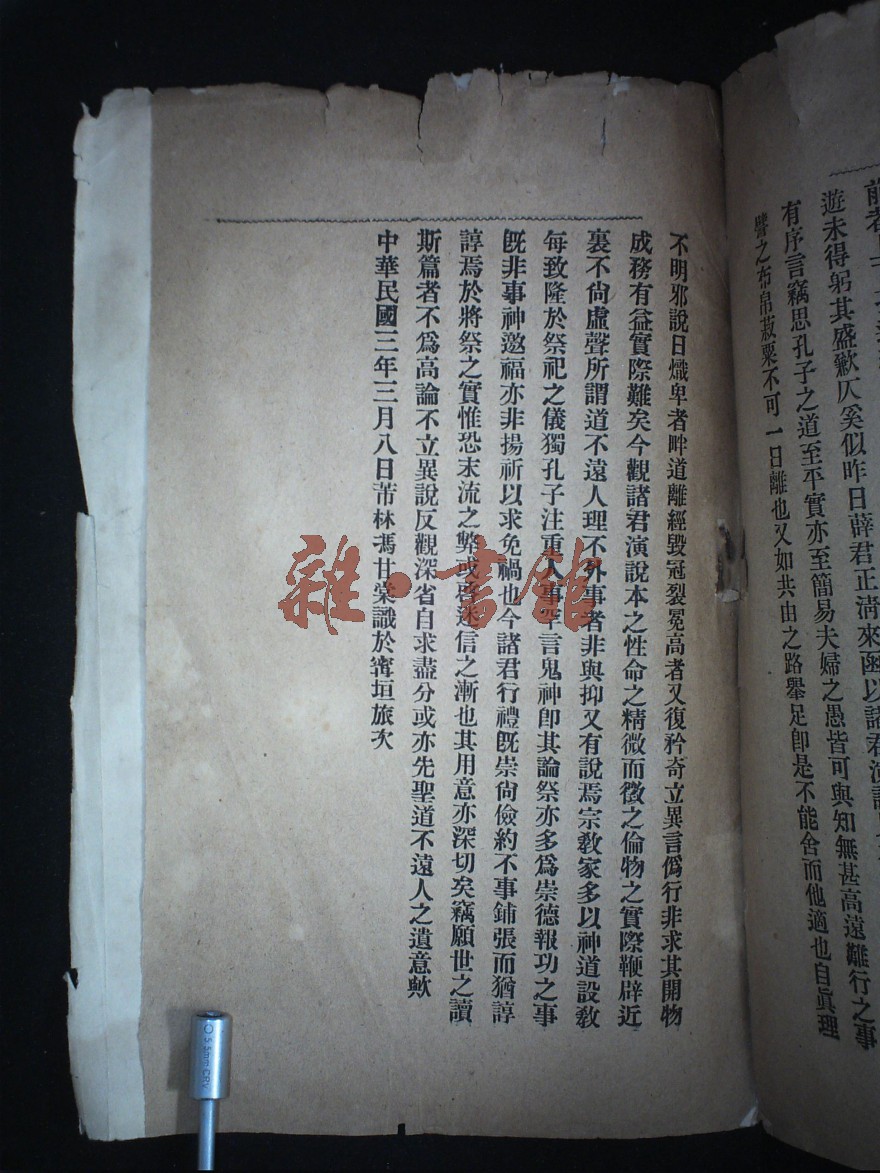 遊未得躬其盛歉仄奚似昨日薛君正淸來函以諸君演說
有序言竊思孔子之道至平實亦至簡易夫婦之愚皆可與知無甚高遠難行之事
譬之布帛菽粟不可一日離也又如共由之路舉足卽是不能舍而他適也自眞理
不明邪說日熾卑者畔道離經毀冠裂冕高者又復矜奇立異言僞行非求其開物
成務有益實際難矣今觀諸君演說本之性命之精微而徵之倫物之實際鞭辟近
裏不尙虛聲所謂道不遠人理不外事者非與抑又有說焉宗敎家多以神道設敎
每致隆於祭祀之儀獨孔子注重人事罕言鬼神卽其論祭亦多爲崇德報功之事
旣非事神邀福亦非揚祈以求免禍也今諸君行禮旣崇尙儉約不事鋪張而猶諄
諄焉於將祭之實惟恐末流之弊或啓迷信之漸也其用意亦深切矣竊願世之讀
斯篇者不爲高論不立異說反觀深省自求盡分或亦先聖道不遠人之遺意歟
中華民國三年三月八日芾林馮甘棠識於甯垣旅次
雜·書館
5.5mm CRV